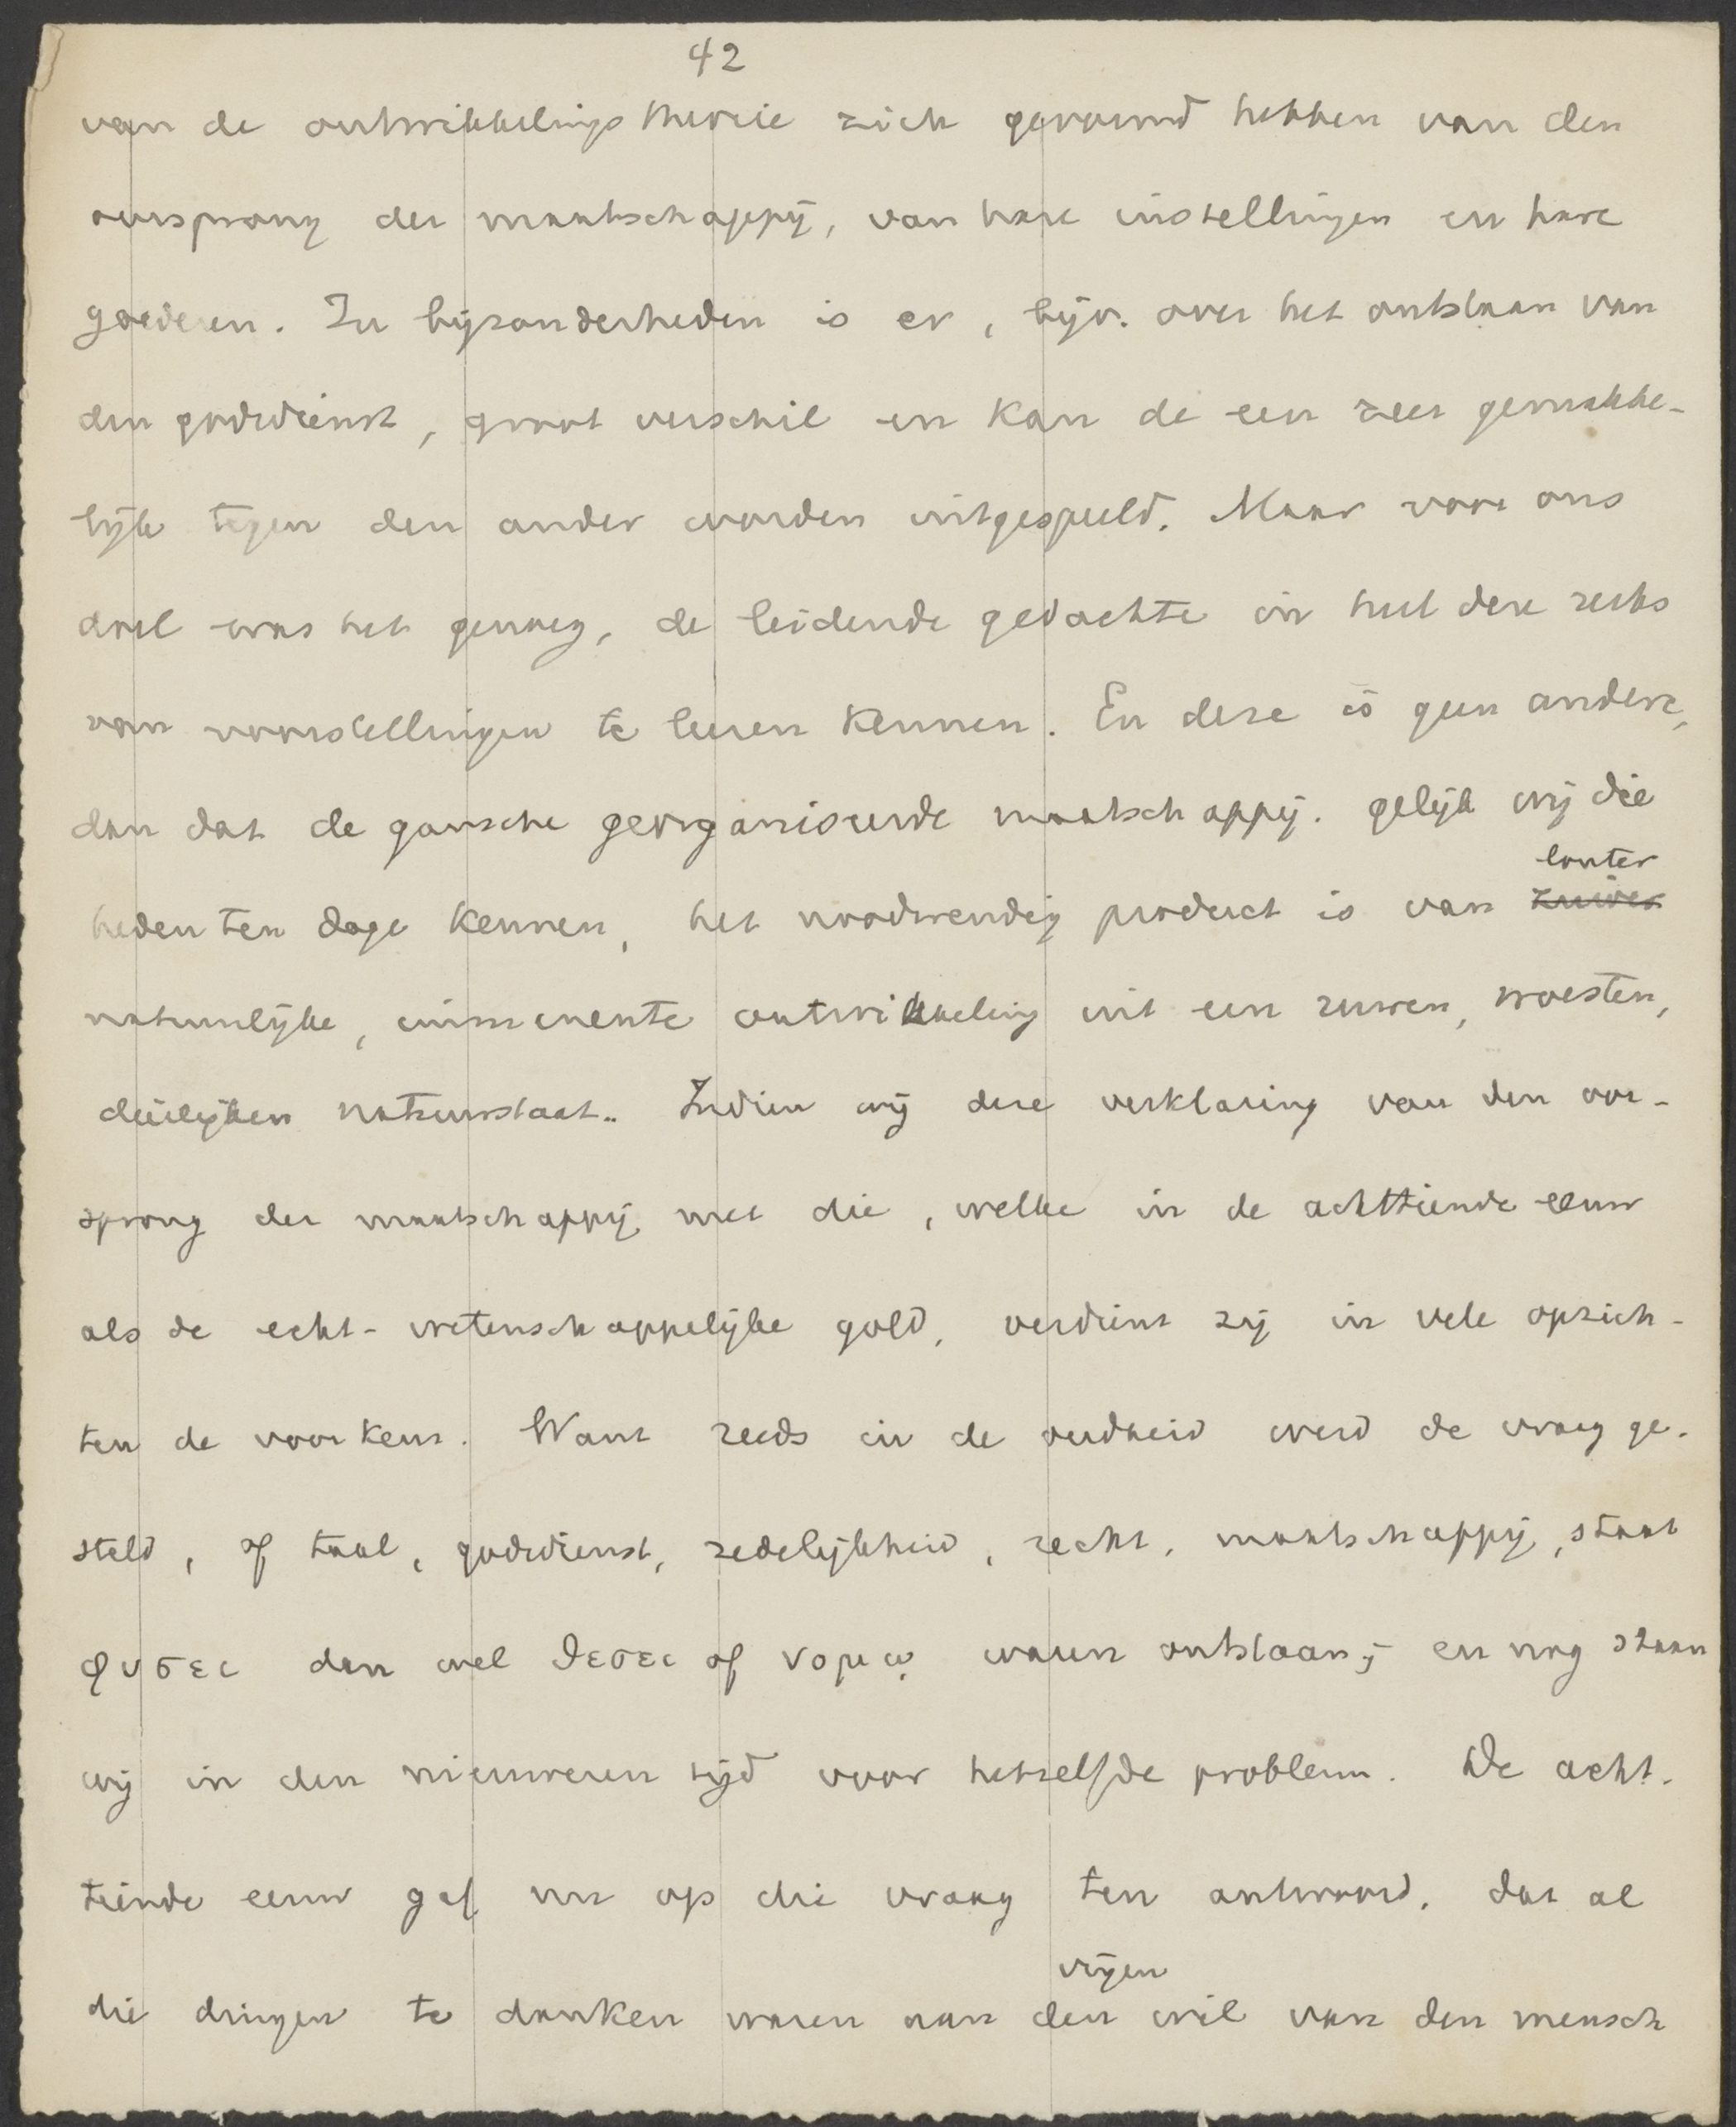 42
van de ontwikkelingstheorie zich gevormd hebben van den
oorsprong der maatschappij, van hare instellingen en hare
goederen. In bijzonderheden is er, bijv. over het ontstaan van
den godsdienst, groot verschil en kan de een zeer gemakke-
lijk tegen den ander worden uitgespeeld. Maar voor ons
doel was het genoeg, de leidende gedachte in heel deze reeks
van voorstellingen te leeren kennen. En deze is geen andere,
dan dat de gansche georganiseerde maatschappij. gelijk wij die
heden ten dage kennen, het noodwendig product is van zuiver louter
natuurlijke, immanente ontwikkeling uit een ruwen, woesten,
dierlijken natuurstaat.. Indien wij deze verklaring van den oor-
sprong der maatschappij met die, welke in de achttiende eeuw
als de echt-wetenschappelijke gold, verdient zij in vele opzich-
ten de voorkeur. Want reeds in de oudheid werd de vraag ge-
steld, of taal, godsdienst, zedelijkheid, recht, maatschappij, staat
φυσει dan wel θεσει of νομῳ waren ontstaan; en nog staan
wij in den nieuweren tijd voor hetzelfde probleem. De acht-
tiende eeuw gaf nu op die vraag ten antwoord, dat al
die dingen te danken waren aan den vrijen wil van den mensch